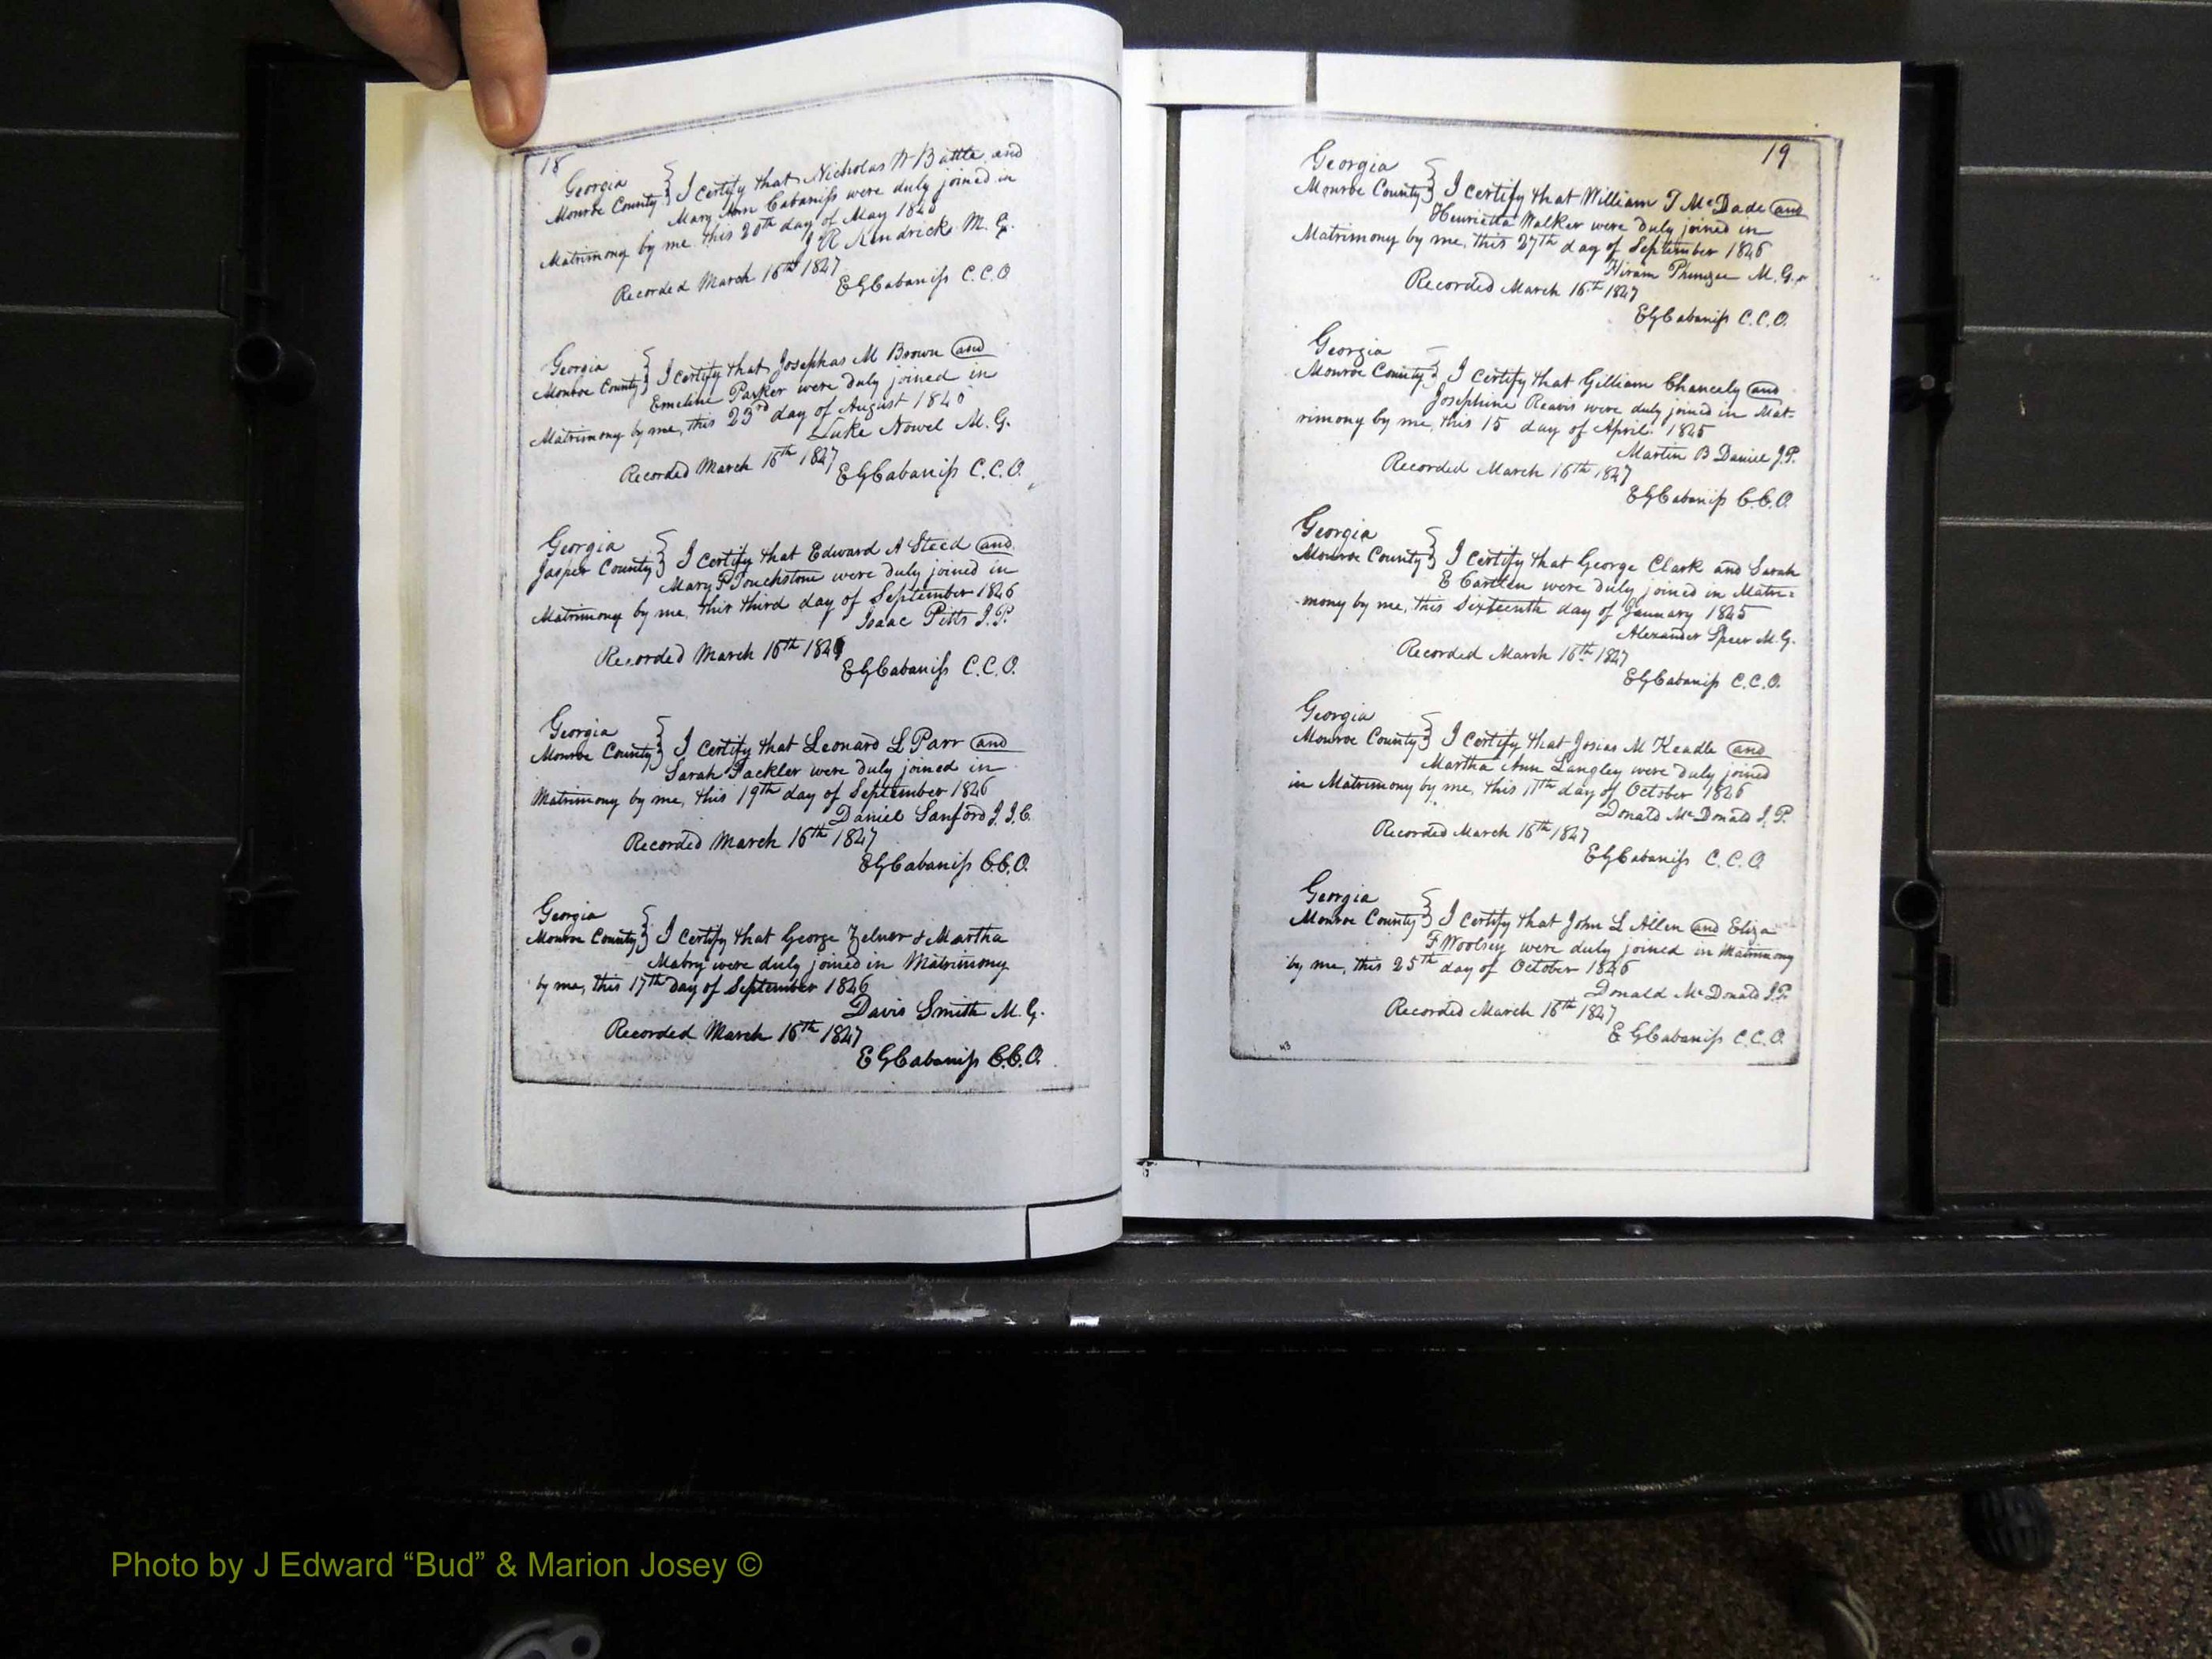 18
Georgia
Monroe County } I certify that Nicholas W Battle and
Mary Ann Cabaniss were duly joined in
Matrimony by me this 20th day of May 1846
J R Kendrick M. G.
Recorded March 16th 1847
EGCabaniss C.C.O
Georgia
Monroe County } I certify that Josephas M Brown and
Emeline Parker were duly joined in
Matrimony by me, this 23rd day of August 1846
Luke Nowel M. G.
Recorded March 16th 1847
EGCabaniss C.C.O.
Georgia
Jasper County } I certify that Edward A Steed and
Mary P Touchstone were duly joined in
Matrimony by me, this third day of September 1846
Isaac Pitts J.P.
Recorded March 16th
EGCabaniss C.C.O.
Georgia
Monroe County } I certify that Leonard L Parr and
Sarah Fackler were duly joined in
Matrimony by me, this 19th day of September 1846
Daniel Sanford J.I.C.
Recorded March 16th 1847
EGCabaniss C.C.O.
Georgia
Monroe County } I certify that George Zelner & Martha
Mabry were duly joined in Matrimony
by me, this 17th day of September 1846
Davis Smith M. G.
Recorded March 16th 1847
EGCabaniss C.C.O.
19
Georgia
Monroe County } I certify that William T McDade and
Henrietta Walker were duly joined in
Matrimony by me, this 27th day of September 1846
Hiram M. G.
Recorded March 16th 1847
EGCabaniss C.C.O.
Georgia
Monroe County } I certify that Gilliam Chancely and
Josephine Reavis were duly joined in Mat-
rimony by me, this 15 day of April 1845
Martin B Daniel J.P.
Recorded March 16th 1847
EGCabaniss C.C.O.
Georgia
Monroe County } I certify that George Clark and Sarah
E were duly joined in Matri=
-mony by me, this Sixteenth day of January 1845
Alexander Speer M.G.
Recorded March 16th 1847
EGCabaniss C.C.O.
Georgia
Monroe County } I certify that Josias M Keadle and
Martha Ann Langley were duly joined
in Matrimony by me, this 11th day of October 1846
Donald McDonald J.P.
Recorded March 16th 1847
EGCabaniss C.C.O
Georgia
Monroe County } I certify that John L Allen and Eliza
F Woolsey were duly joined in Matrimony
by me, this 25th day of October 1846
Donald McDonald J.P.
Recorded March 16th 1847
EGCabaniss C.C.O.
Photo by J Edward “Bud” & Marion Josey ©